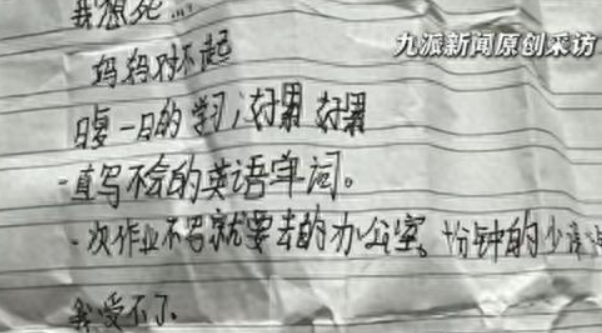 我想死...
九派新闻原创采访
妈妈对不起
日复一日的学习,好累好累
一直写不会的英语单词。
一次作业不写就要去的办公室。十分钟的少
我受不了。